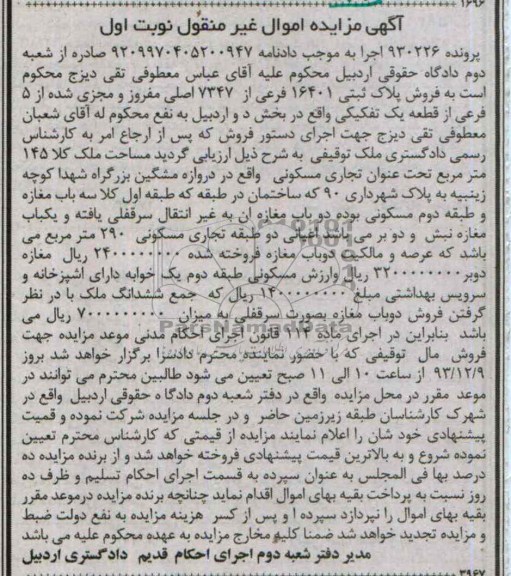 ۱۶۹۶
آگهی مزایده اموال غیر منقول نوبت اول
پرونده ۹۳۰۲۲۶ اجرا به موجب دادنامه ۹۲۰۹۹۷۰۴۰۵۲۰۰۹۴۷ صادره از شعبه
دوم دادگاه حقوقی اردبیل محکوم علیه آقای عباس معطوفی تقی دیزج محکوم
است به فروش پلاک ثبتی ۱۶۴۰۱ فرعی از ۷۳۴۷ اصلی مفروز و مجزی شده از ۵
فرعی از قطعه یک تفکیکی واقع در بخش د و اردبیل به نفع محکوم له آقای شعبان
معطوفی تقی دیزج جهت اجرای دستور فروش که پس از ارجاع امر به کارشناس
رسمی دادگستری ملک توقیفی به شرح ذیل ارزیابی گردید مساحت ملک کلا ۱۴۵
متر مربع تحت عنوان تجاری مسکونی واقع در دروازه مشگین بزرگراه شهدا کوچه
زینبیه به پلاک شهرداری ۹۰ که ساختمان در طبقه که طبقه اول کلا سه باب مغازه
و طبقه دوم مسکونی بوده دو باب مغازه ان به غیر انتقال سرقفلی یافته و یکباب
مغازه نبش و دو بر می باشد اعیانی دو طبقه تجاری مسکونی ۲۹۰ متر مربع می
باشد که عرصه و مالکیت دوباب مغازه فروخته شده ریال مغازه
دوبر ریال وارزش مسکونی طبقه دوم یک خوابه دارای اشپزخانه و
سرویس بهداشتی مبلغ ریال که جمع ششدانگ ملک با در نظر
گرفتن فروش دوباب مغازه بصورت سرقفلی به میزان ریال می
باشد بنابراین در اجرای ماده ۱۱۴ قانون اجرای احکام مدنی موعد مزایده جهت
فروش مال توقیفی که با حضور نماینده محترم دادسرا برگزار خواهد شد بروز
۹۳/۱۲/۹ از ساعت ۱۰ الی ۱۱ صبح تعیین می شود طالبین محترم می توانند در
موعد مقرر در محل مزایده واقع در دفتر شعبه دوم دادگا ه حقوقی اردبیل واقع در
شهرک کارشناسان طبقه زیرزمین حاضر و در جلسه مزایده شرکت نموده و قمیت
پیشنهادی خود شان را اعلام نمایند مزایده از قیمتی که کارشناس محترم تعیین
نموده شروع و به بالاترین قیمت پیشنهادی فروخته خواهد شد و از برنده مزایده ده
درصد بها فی المجلس به عنوان سپرده به قسمت اجرای احکام تسلیم و ظرف ده
روز نسبت به پرداخت بقیه بهای اموال اقدام نماید چنانچه برنده مزایده درموعد مقرر
بقیه بهای اموال را نپردازد سپرده ا و پس از کسر هزینه مزایده به نفع دولت ضبط
و مزایده تجدید خواهد شد ضمنا کلیه مخارج مزایده به عهده محکوم علیه می باشد
مدیر دفتر شعبه دوم اجرای احکام قدیم دادگستری اردبیل
۳۹۶۷
ParsNamadData